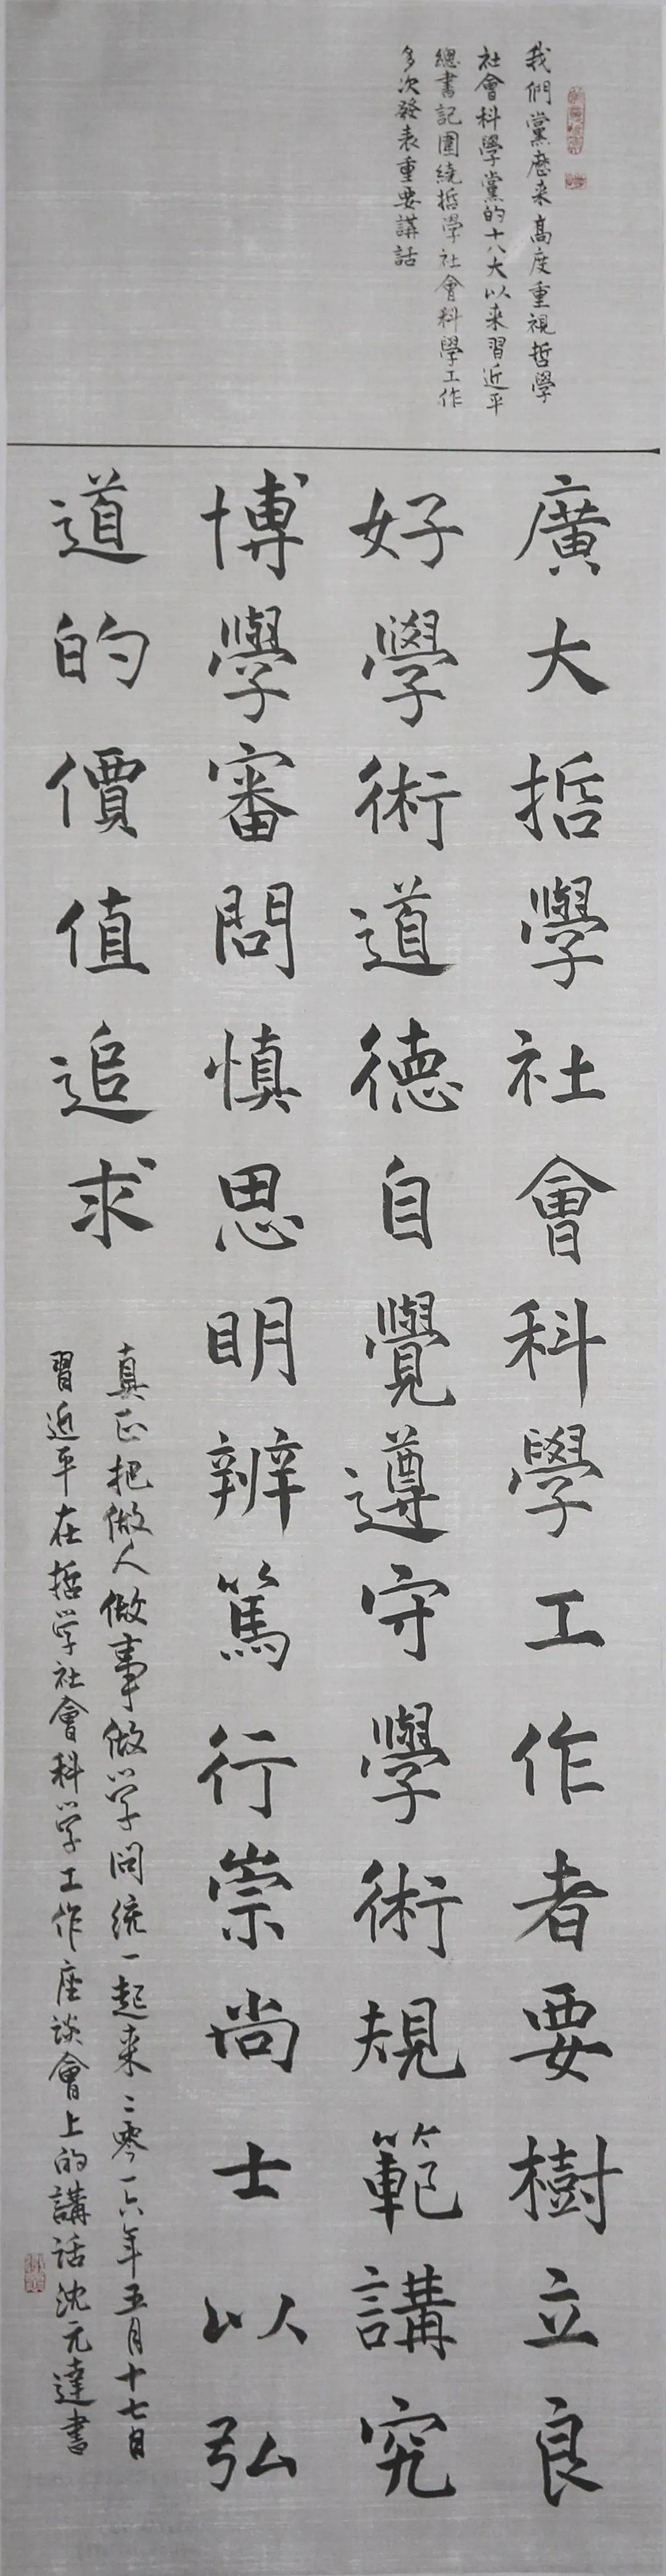 我們黨歷来高度重視哲學
社會科學黨的十八大以来習近平
總書記圍繞哲學社會科學工作
多次發表重要講話
廣大哲學社會科學工作者要樹立良
好學術道德自覺遵守學術規範講究
博學審問慎思明辨篤行崇尚士以弘
道的價值追求
真正把做人做事做学问統一起来二零一六年五月十七日
習近平在哲学社會科学工作座谈會上的講话沈元達書